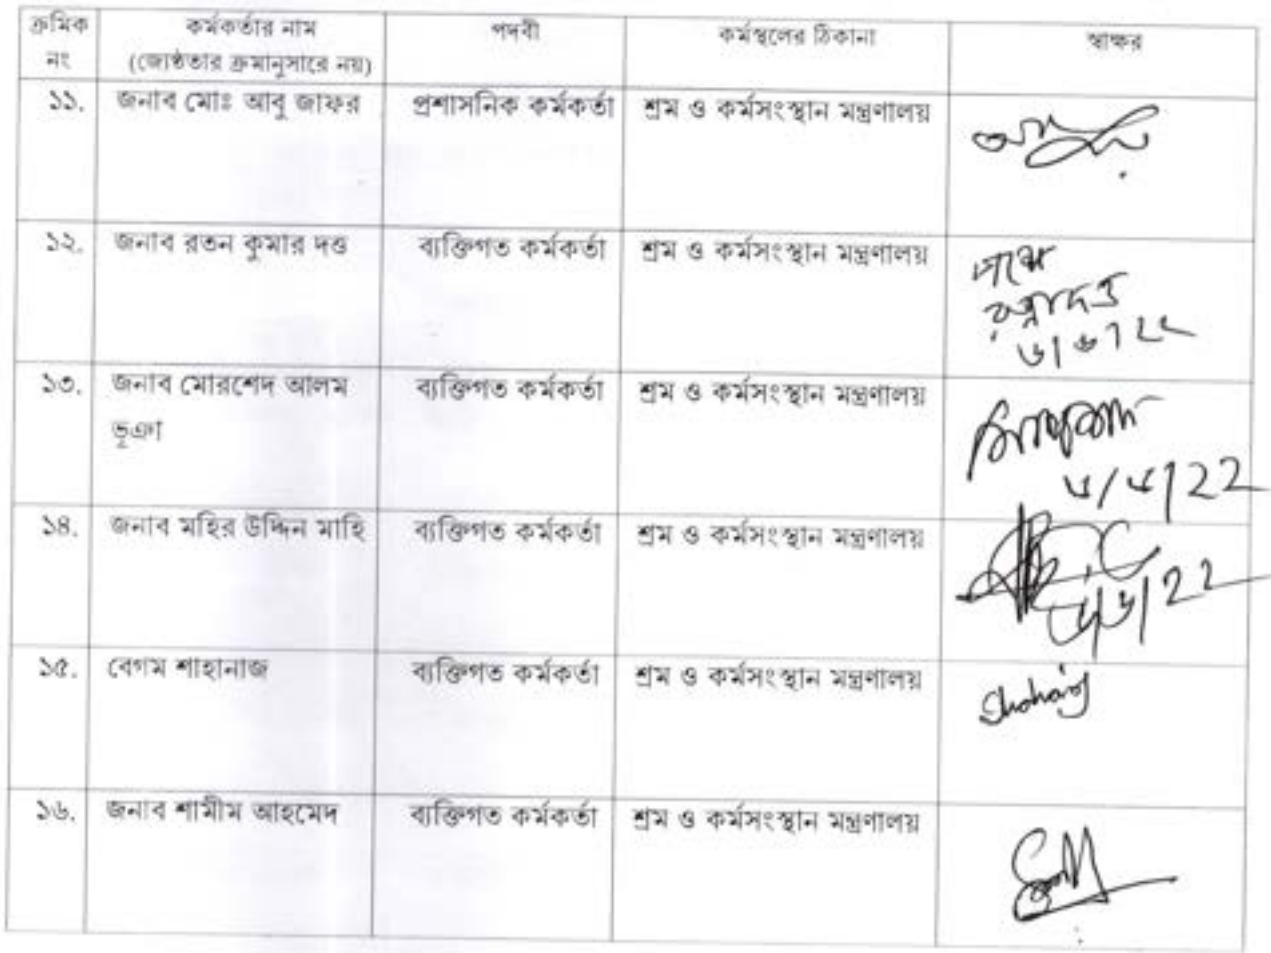 ক্রমিক নং কর্মকর্তার নাম পদবী কর্মস্থলের ঠিকানা স্বাক্ষর
(জ্যেষ্ঠতার ক্রমানুসারে নয়)
১১. জনাব মোঃ আবু জাফর প্রশাসনিক কর্মকর্তা শ্রম ও কর্মসংস্থান মন্ত্রণালয়
১২. জনাব রতন কুমার দত্ত ব্যক্তিগত কর্মকর্তা শ্রম ও কর্মসংস্থান মন্ত্রণালয়
১৩. জনাব মোরশেদ আলম ব্যক্তিগত কর্মকর্তা শ্রম ও কর্মসংস্থান মন্ত্রণালয়
ভূঞা
১৪. জনাব মহির উদ্দিন মাহি ব্যক্তিগত কর্মকর্তা শ্রম ও কর্মসংস্থান মন্ত্রণালয়
১৫. বেগম শাহানাজ ব্যক্তিগত কর্মকর্তা শ্রম ও কর্মসংস্থান মন্ত্রণালয়
১৬. জনাব শামীম আহমেদ ব্যক্তিগত কর্মকর্তা শ্রম ও কর্মসংস্থান মন্ত্রণালয়